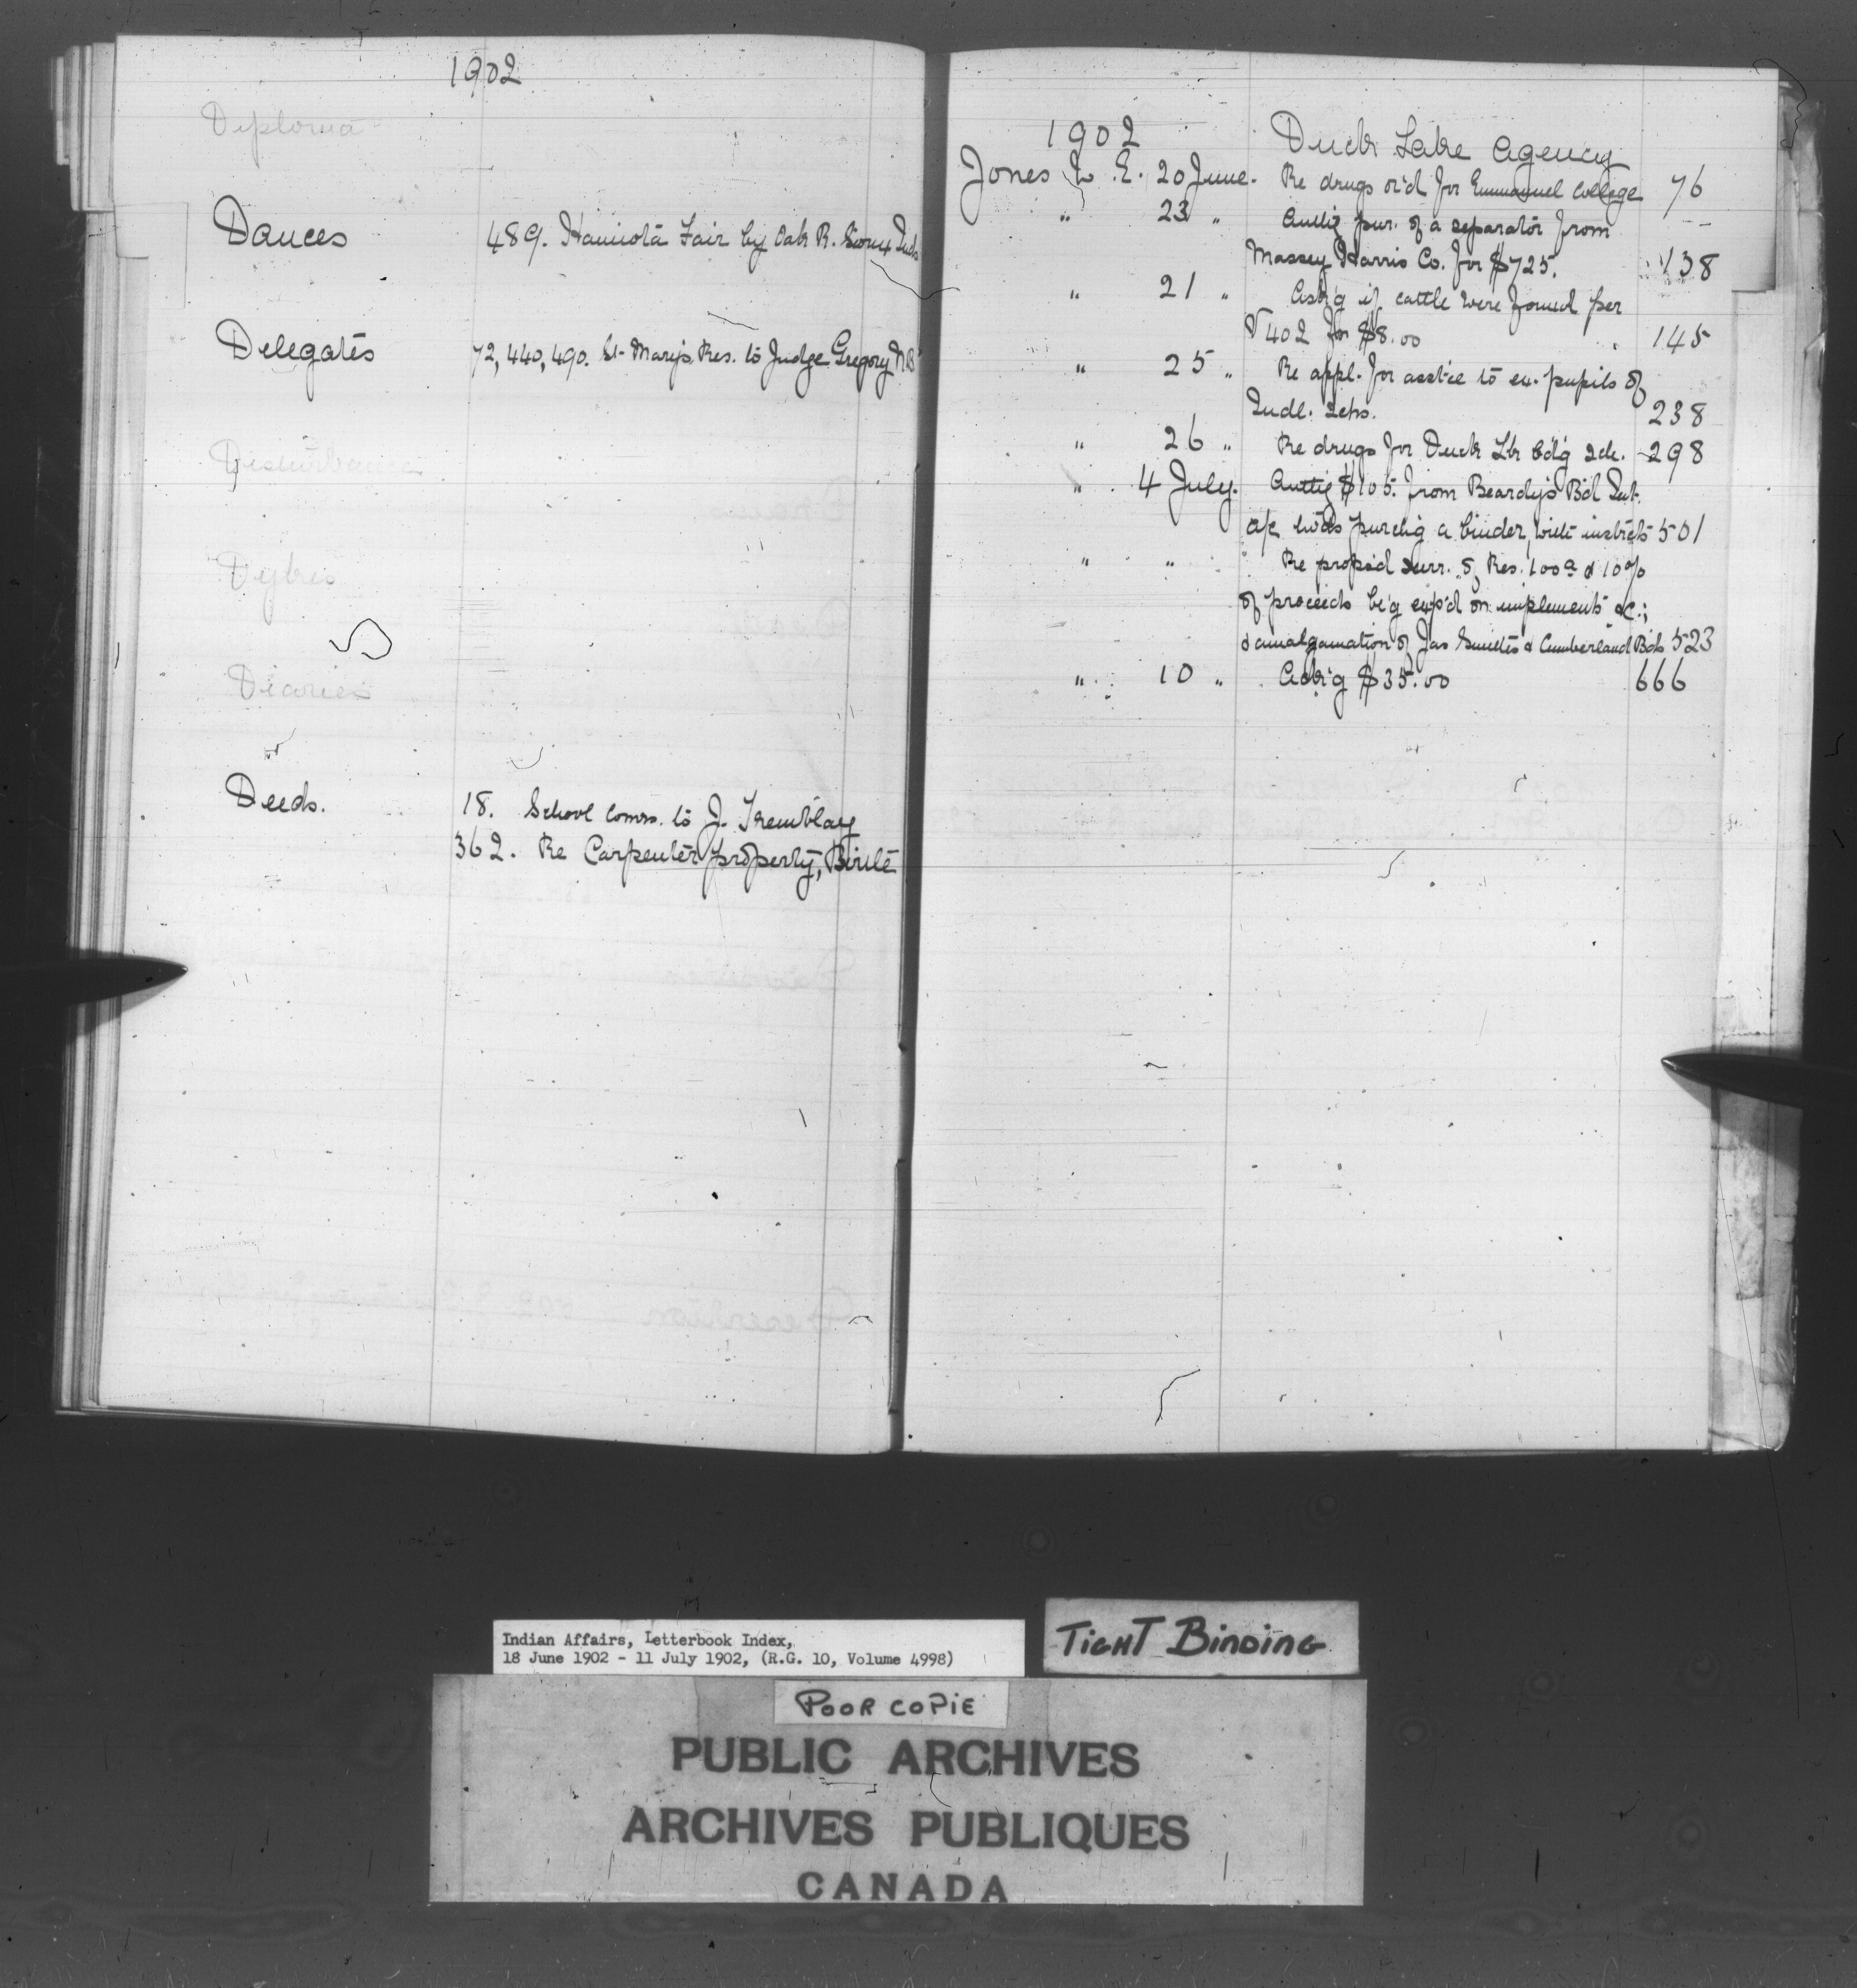 1902
Diploma
Dances 489. Hamiota Fair by Oak R. Sioux Inds
Delegates 72, 440, 490. St. Mary's Res. to Judge Gregory N.B
Disturbance
Dykes
Diaries
Deeds. 18. School Comrs. to J. Tremblay
362. Re Carpenter property, Birtle
1902 Duck Lake Agency
Jones W. E. 20 June. Re drugs or'd for Emmanuel College 76
" 23 " Authg pur. of a separator from
Massey Harris Co. for $725. 138
" 21 " Ask'g if cattle were found per
V 402 for $8.00 145
" 25 " Re appl. for asst'ce to ex. pupils of
Indl. Schs. 238
" 26 " Re drugs for Duck Lk b'd'g Sch. 298
" 4 July. Authg $105. from Beardy's B'd Int.
a/c tw'ds purch'g a binder, with instrcts 501
" " Re propos'd surr. of Res. 100 a & 10%
of proceeds be'g exp'd on implements &c.;
& amalgamation of Jas Smith's & Cumberland Bds 523
" 10 " Ack'g $35.00 666
Indian Affairs, Letterbook Index,
18 June 1902 - 11 July 1902, (R.G. 10, Volume 4998)
TIGHT BINDING
POOR COPIE
PUBLIC ARCHIVES
ARCHIVES PUBLIQUES
CANADA